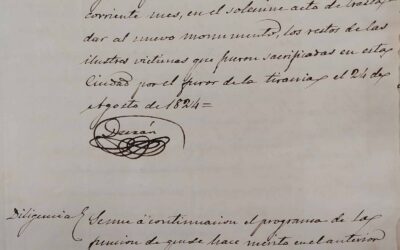 corriente mes, en el solemne acto de trasla-
dar al nuevo monumento, los restos de las
ilustres victimas que fueron sacrificadas en esta
Ciudad por el furor de la tirania el 24 de
Agosto de 1824=
Durán
Diligencia
Se une á continuacion el programa de la
funcion de que se hace merito en el anterior